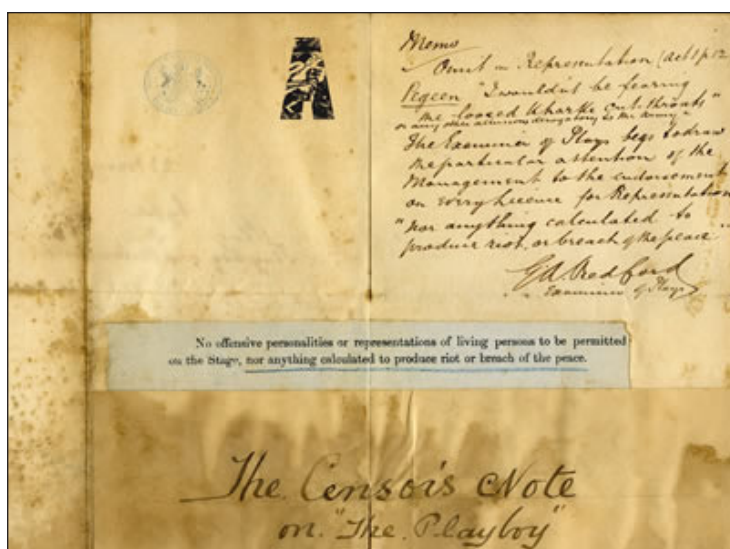 Memo
Omit in Representation (act 1 p. 12
Pegeen "I wouldn't be fearing
the loosed kharki cut-throats"
or any other allusions derogatory to the Army"
The Examiner of Plays begs to draw
the particular attention of the
Management to the endorsement
on every licence for Representation
"nor anything calculated to
produce riot, or breach of the peace"
G.A. Redford
Examiner of Plays
No offensive personalities or representations of living persons to be permitted
on the Stage, nor anything calculated to produce riot or breach of the peace.
The Censor's Note
on "The Playboy"